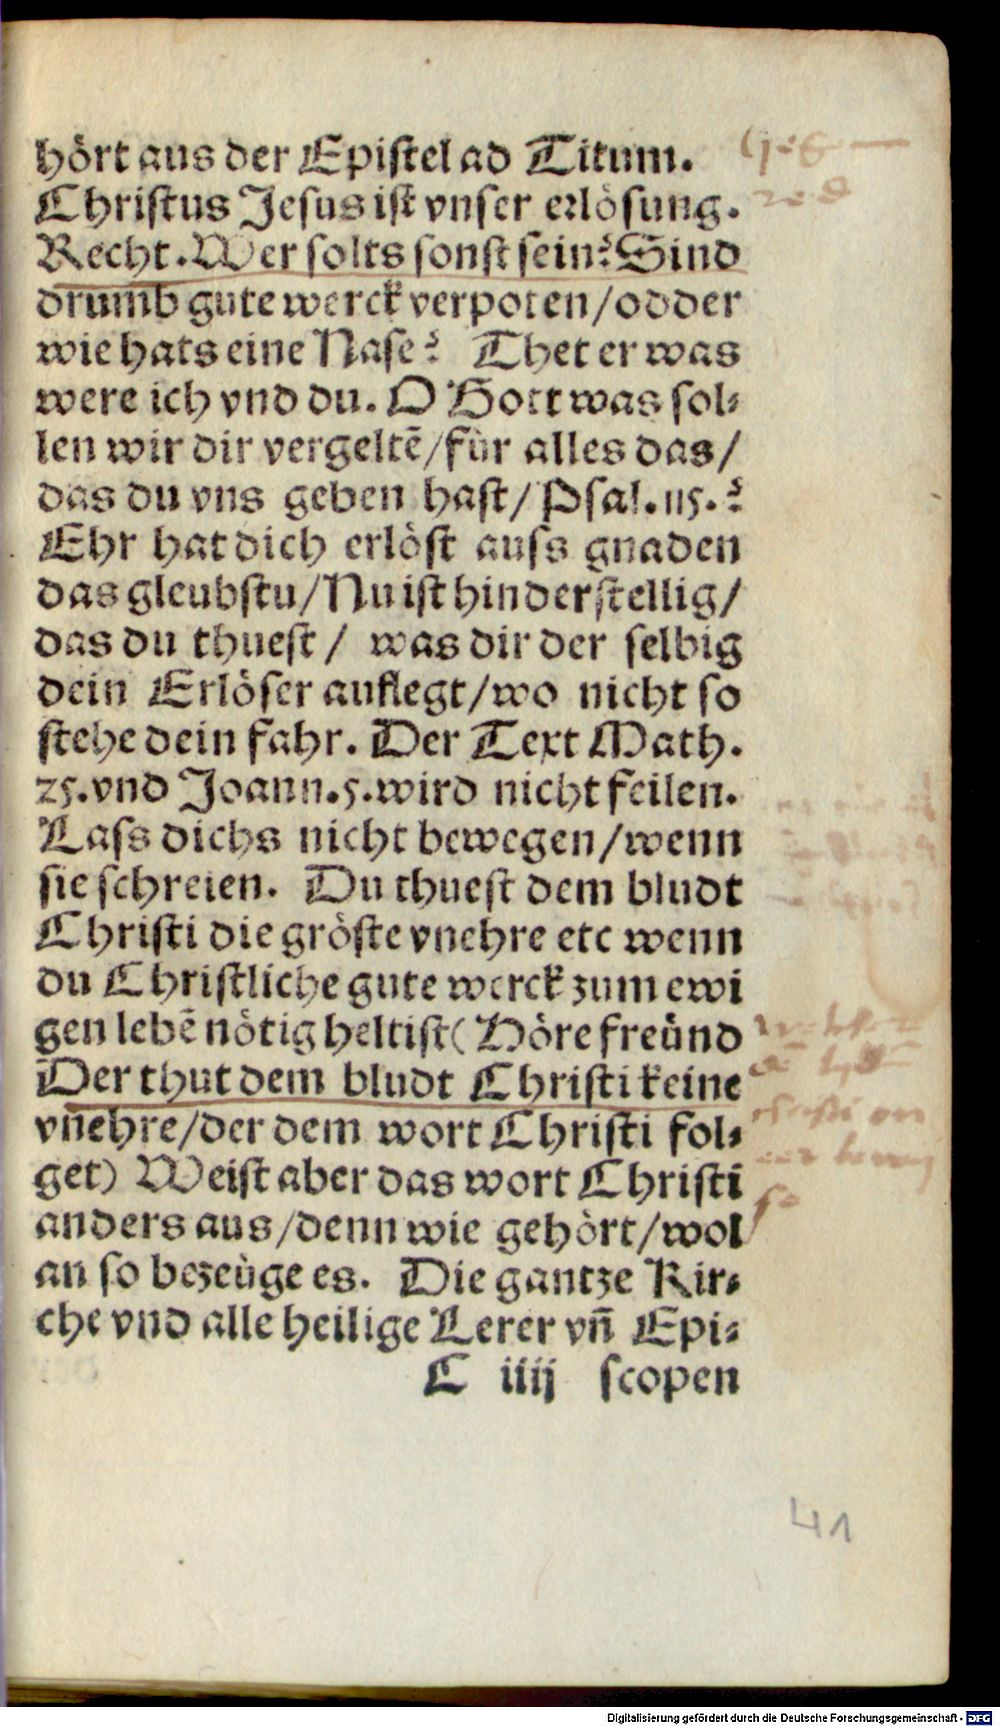 hört aus der Epistel ad Titum.
Christus Jesus ist vnser erlösung.
Recht. Wer solts sonst sein? Sind
drumb gute werck verpoten/odder
wie hats eine Nase? Thet er was
were ich vnd du. O Gott was sol⸗
len wir dir vergeltẽ/für alles das/
das du vns geben hast/ Psal. 115.?
Ehr hat dich erlöst auss gnaden
das gleubstu/Nu ist hinderstellig/
das du thuest/ was dir der selbig
dein Erlöser auflegt/wo nicht so
stehe dein fahr. Der Text Math.
25. vnd Joann. 5. wird nicht feilen.
Lass dichs nicht bewegen/wenn
sie schreien. Du thuest dem bludt
Christi die gröste vnehre etc wenn
du Christliche gute werck zum ewi
gen lebẽ nötig heltist( Höre freünd
Der thut dem bludt Christi keine
vnehre/der dem wort Christi fol⸗
get) Weist aber das wort Christi
anders aus/denn wie gehört/wol
an so bezeüge es. Die gantze Kir⸗
che vnd alle heilige Lerer vñ Epi⸗
C iiij scopen
41
Digitalisierung gefördert durch die Deutsche Forschungsgemeinschaft - DFG